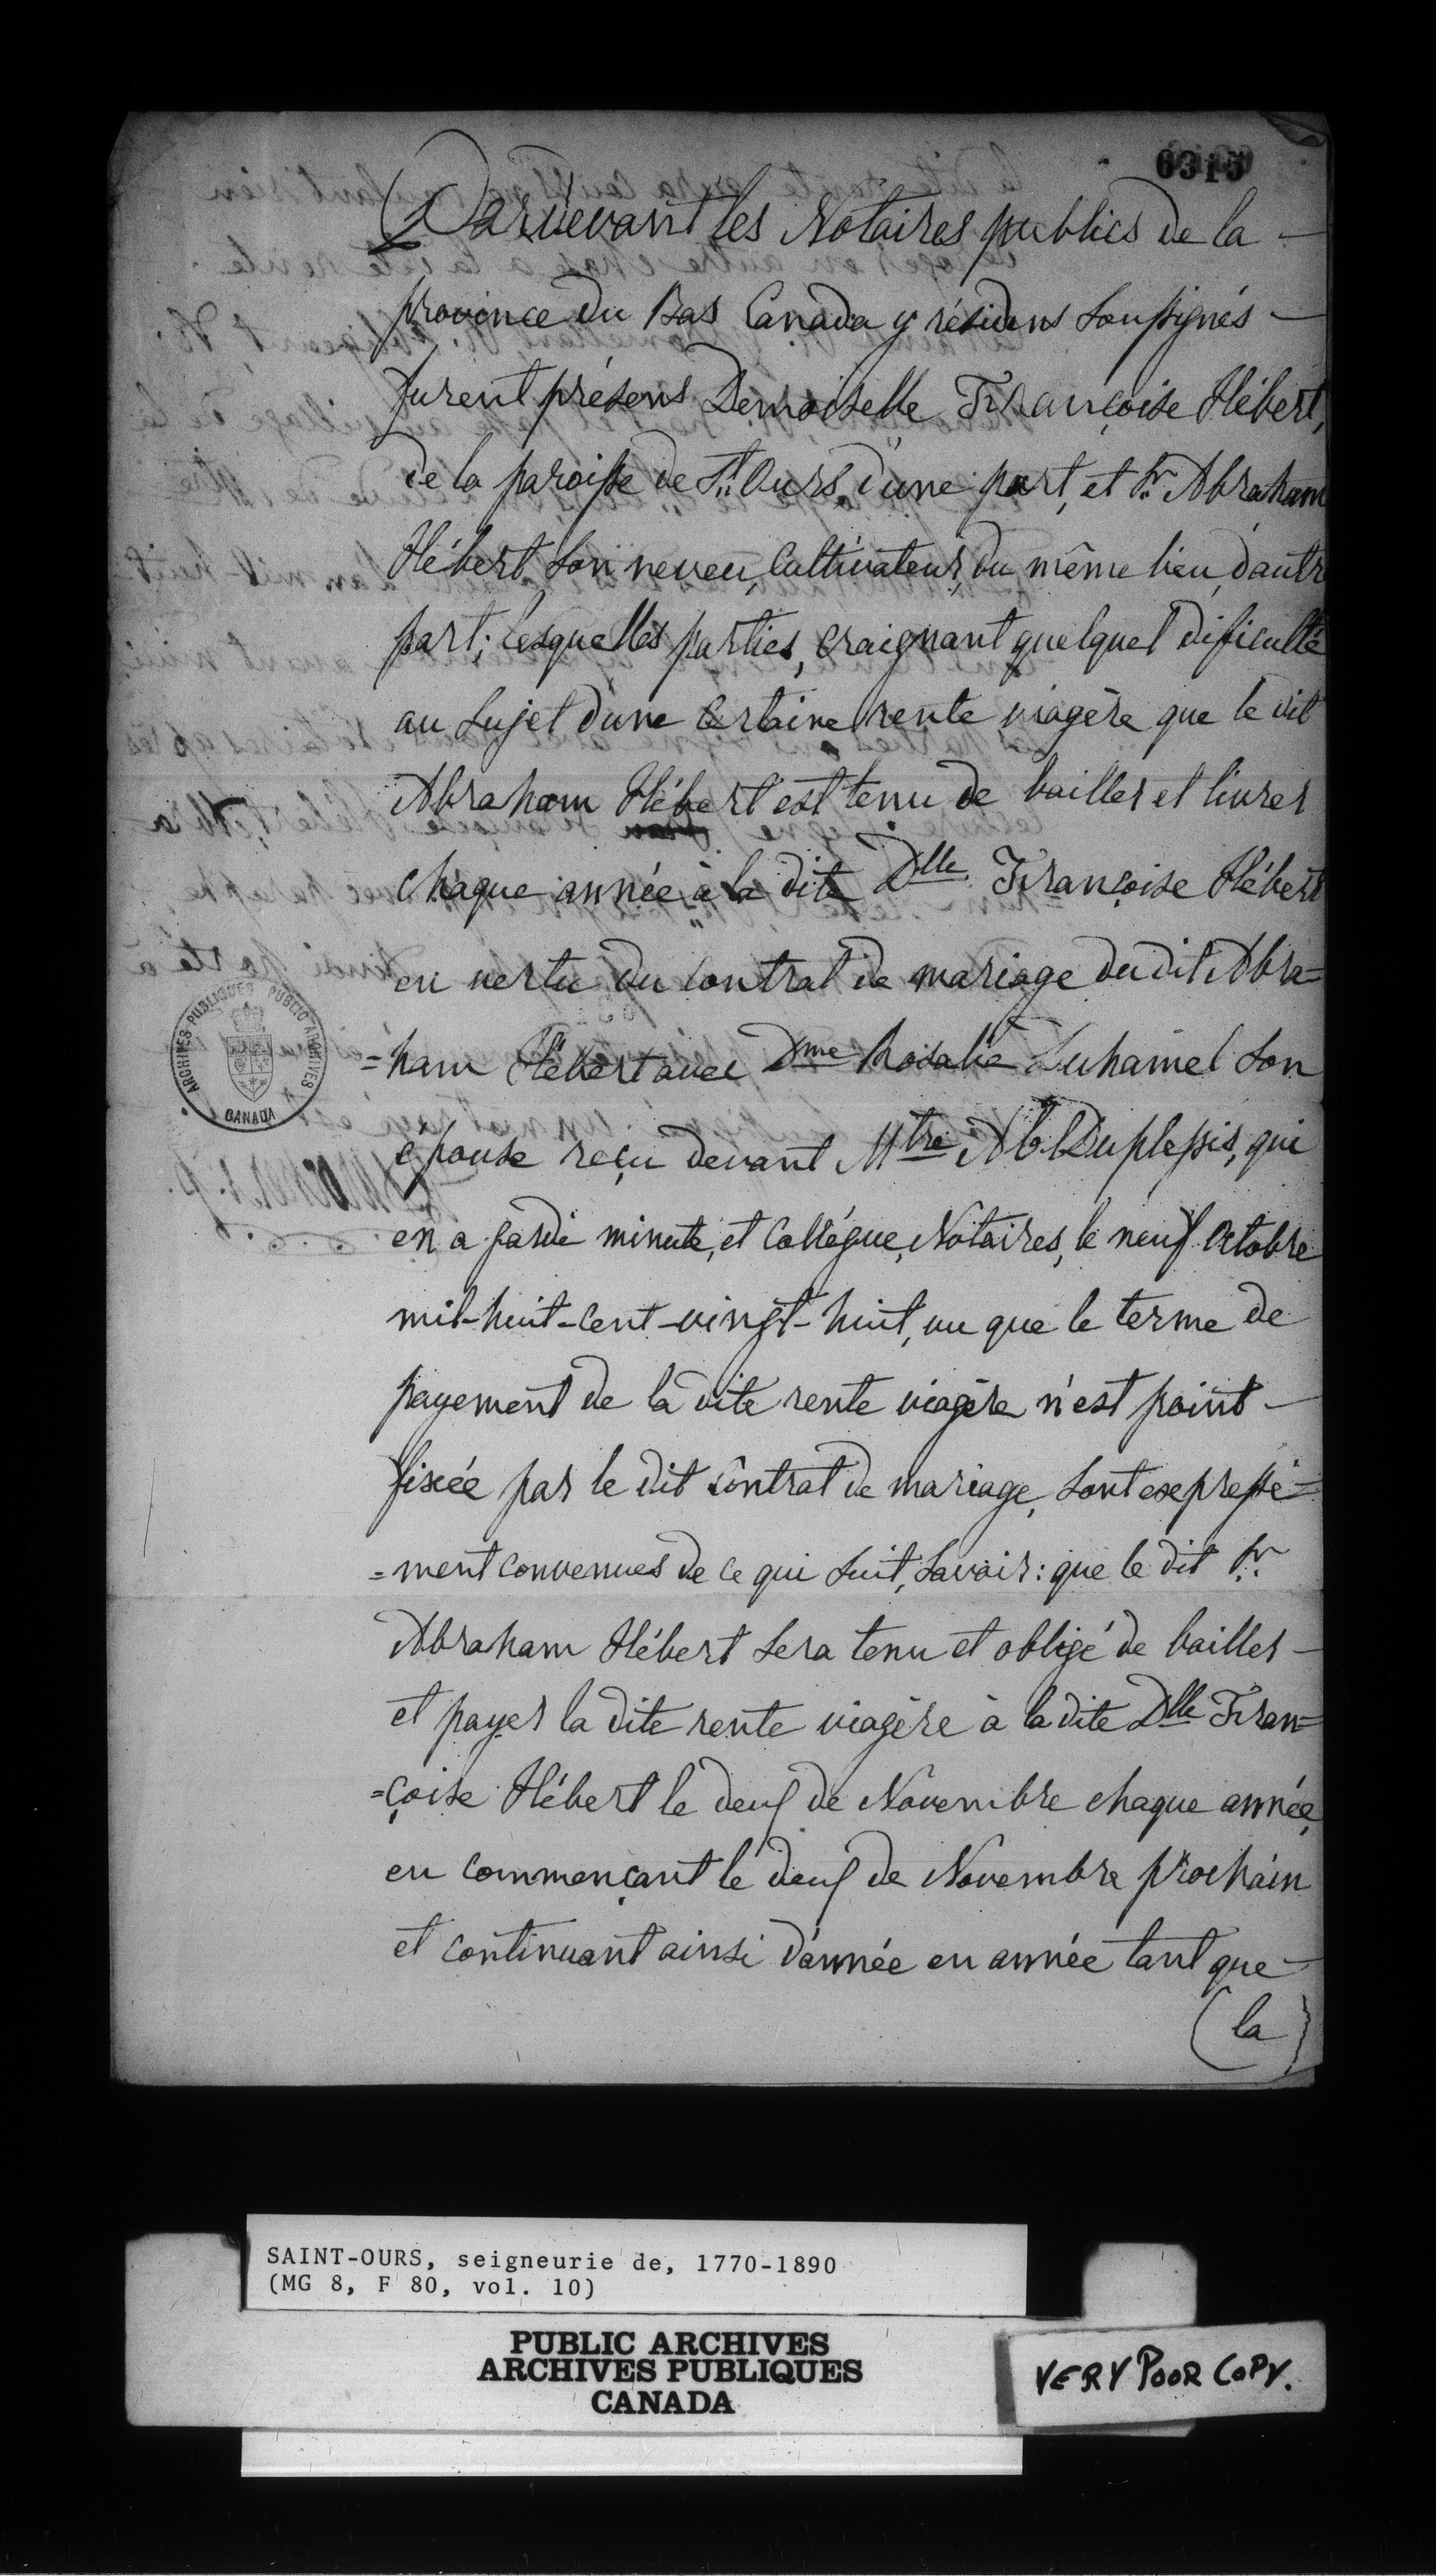 6315
Pardevant les Notaires publics de la —
province du Bas Canada y résidens Soussignés —
furent présens Demoiselle Françoise Hébert,
de la paroisse de St. Ours, d'une part, et Sr. Abraham
Hébert, Son neveu, Cultivateur, du même lieu, d'autre
part; lesquelles parties, craignant quelque dificulté
au Sujet d'une Certaine rente viagère que le dit
Abraham Hébert est tenu de bailler et livrer
chaque année à la dite Dlle. Françoise Hébert
en vertu du Contrat de mariage du dit Abra=
=ham Hébert avec Dme Rosalie Duhamel Son
épouse reçu devant Mtre Ab. L. Duplessis, qui
en a gardé minute, et Collégue, Notaires, le neuf Octobre
mil-huit-Cent-vingt-huit, vu que le terme de
payement de la dite rente viagère n'est point —
fixée par le dit Contrat de mariage, Sont expressé=
=ment convenues de ce qui Suit, Savoir: que le dit Sr.
Abraham Hébert Sera tenu et obligé de bailler —
et payer la dite rente viagère à la dite Dlle Fran=
=çoise Hébert le deux de Novembre chaque année,
en commençant le deux de Novembre prochain
et continuant ainsi d'année en année tant que —
(la)
ARCHIVES PUBLIQUES PUBLIC ARCHIVES
CANADA
SAINT-OURS, seigneurie de, 1770-1890
(MG 8, F 80, vol. 10)
PUBLIC ARCHIVES
ARCHIVES PUBLIQUES
CANADA
VERY POOR COPY.